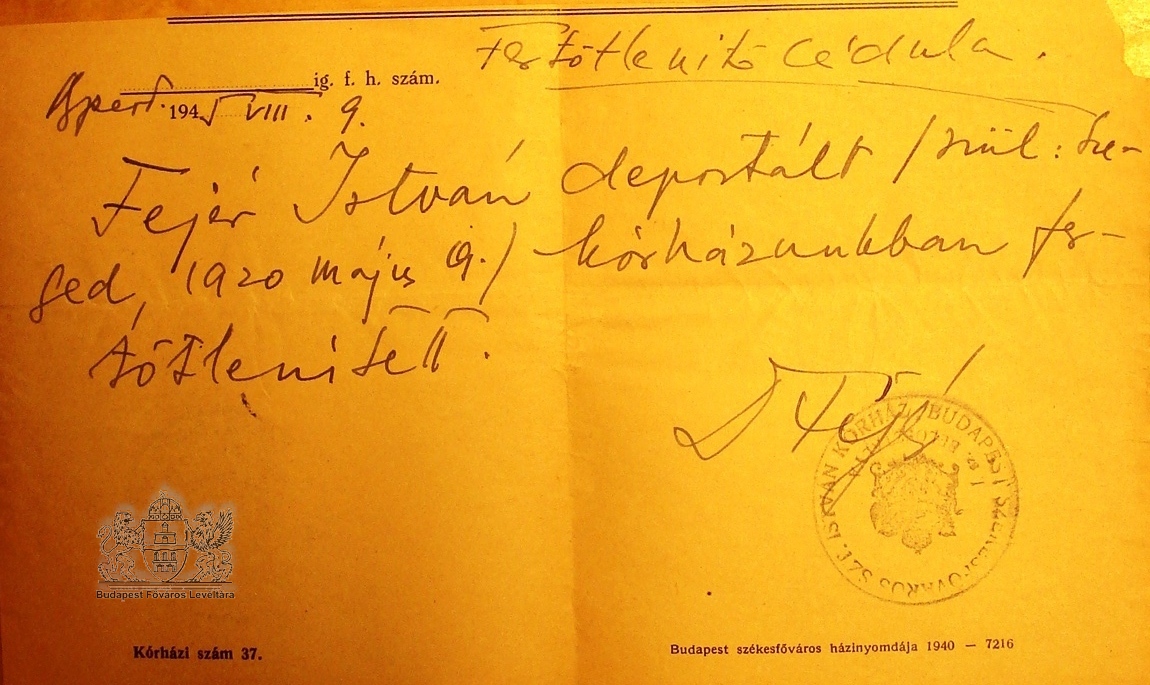 Fertőtlenítő cédula.
ig. f. h. szám.
Bpest. 1945 VIII. 9.
Fejér István deportált /szül: Sze-
ged, 1920 május 9./ kórházunkban fer-
tőtlenített.
BUDAPEST SZÉKESFŐVÁROS SZT. ISTVÁN KÓRHÁZ
Budapest Főváros Levéltára
Kórházi szám 37.
Budapest székesfőváros házinyomdája 1940 — 7216